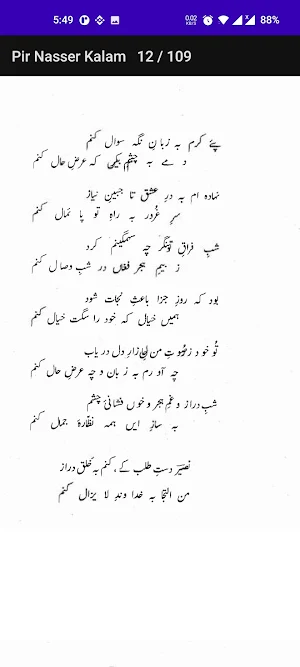 5:49
0.02 KB/S
88%
Pir Nasser Kalam 12 / 109
پئے کرم بہ زبانِ نگہ سوال کنم
دمے بہ چشم کہ عرضِ حال کنم
نہادہ ام بہ درِ عشق تا جبینِ نیاز
سرِ غُرور بہ راہِ تو پائمال کنم
شبِ فراقِ تو نگر چہ سہمگینم کرد
ز بیمِ ہجر فغاں در شبِ وصال کنم
بود کہ روزِ جزا باعثِ نجات شود
ہمیں خیال کہ خود را سگت خیال کنم
تُو خود ز من دل دریاب
چہ آورم بہ زبان و چہ عرضِ حال کنم
شبِ دراز و غمِ ہجر و خوں فشانیٔ چشم
بہ سازِ ایں ہمہ نظّارۂ جمال کنم
نصیرؔ دستِ طلب کے ، کنم بہ خلق دراز
من التجا بہ خداوندِ لا یزال کنم